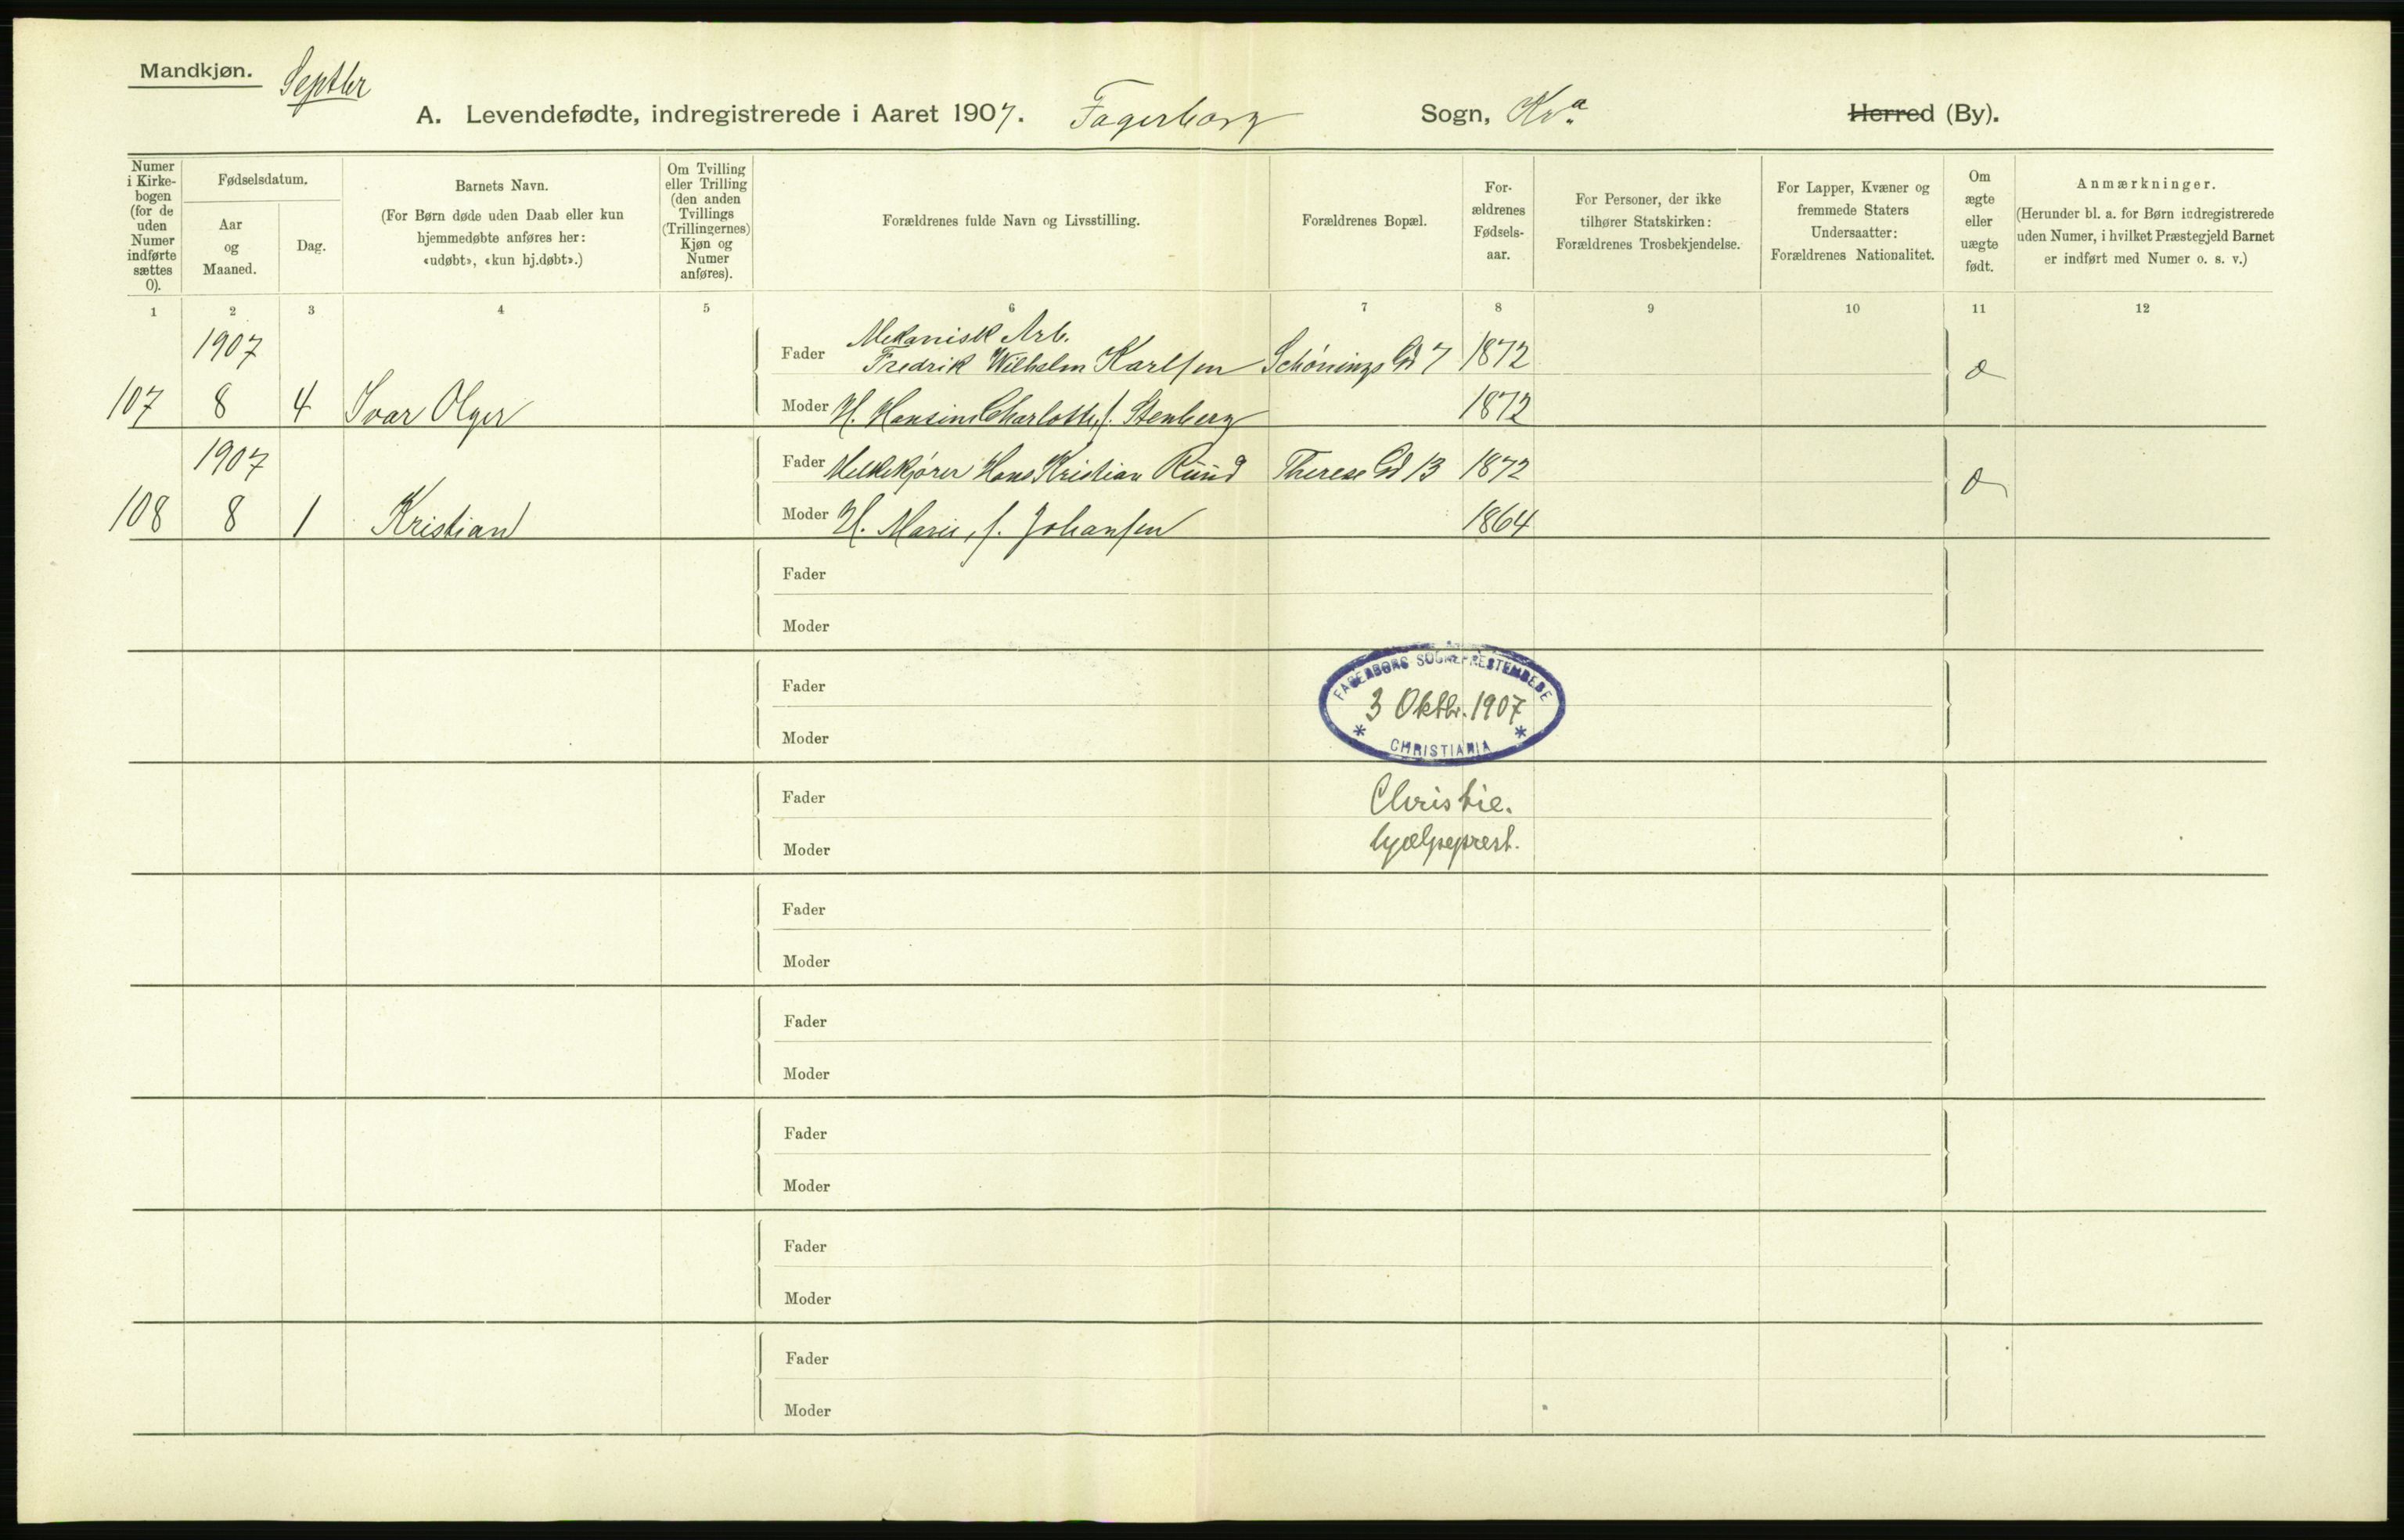 Mandkjøn.
Septbr
A. Levendefødte, indregistrerede i Aaret 1907. Fagerborg Sogn, Kra Herred (By).
Numer i Kirke-bogen (for de uden Numer indførte sættes 0).
Fødselsdatum.
Aar og Maaned.
Dag.
Barnets Navn.
(For Børn døde uden Daab eller kun
hjemmedøbte anføres her:
«udøbt», «kun hj.døbt».)
Om Tvilling
eller Trilling
(den anden
Tvillings
(Trillingernes)
Kjøn og
Numer
anføres).
Forældrenes fulde Navn og Livsstilling.
Forældrenes Bopæl.
For-
ældrenes
Fødsels-
aar.
For Personer, der ikke
tilhører Statskirken:
Forældrenes Trosbekjendelse.
For Lapper, Kvæner og
fremmede Staters
Undersaatter:
Forældrenes Nationalitet.
Om
ægte
eller
uægte
født.
Anmærkninger.
(Herunder bl. a. for Børn indregistrerede
uden Numer, i hvilket Præstegjeld Barnet
er indført med Numer o. s. v.)
1 2 3 4 5 6 7 8 9 10 11 12
1907 Mekanisk Arb.
Fader Fredrik Wilhelm Karlsen Schönings Gd 7 1872
107 8 4 Ivar Olger Moder H. Hansine Charlotte, f. Stenberg 1872
1907 Fader Melkekjører Hans Kristian Ruud Therese Gd 13 1872
108 8 1 Kristian Moder H. Marie, f. Johansen 1864
Fader
Moder
Fader
FAGERBORGS SOGNEPRESTEMBEDE
3 Oktbr. 1907
Moder
* CHRISTIANIA *
Fader Christie.
Moder hjælpeprest.
Fader
Moder
Fader
Moder
Fader
Moder
Fader
Moder
Fader
Moder